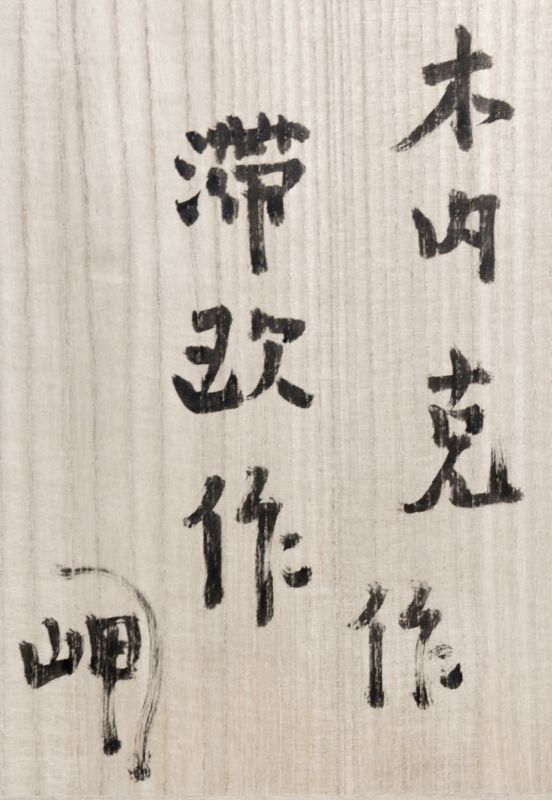 木内克作
滞欧作
岬